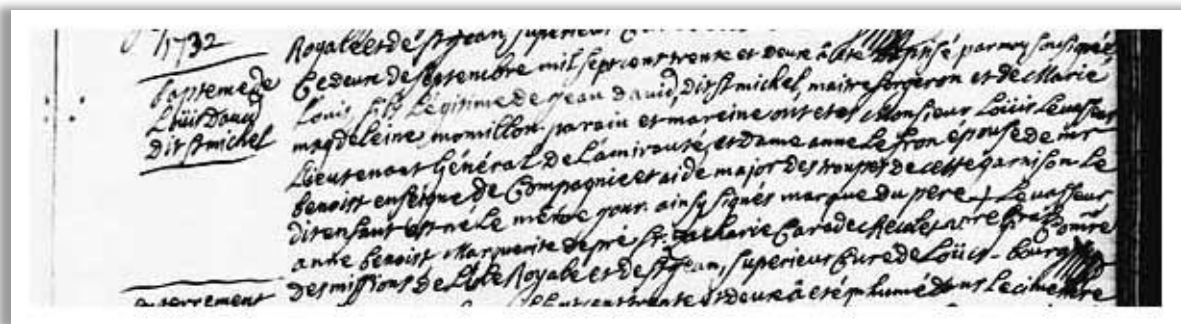 1732
Royale et de St Jean, superieur
bapteme de
Loüis David
dit St michel
Ce deux de septembre mil sept cent trente et deux à été baptisé par moy sousigné
Louis, fils Légitime de jean david, dit St michel, maitre forgeron et de Marie
magdeleine momillon. parain et mareine ont etes Monsieur Loüis Levasseur
Lieutenant Général de Lamirauté, et Dame anne Le fron epouse de mr
benoist enseigne de Compagnie et aide major des troupes de cette garnison. Le
dit enfant est né Le même jour. ainsy signés marque du pere + Levasseur
anne benoist Marguerite depré fr. Zacharie Caradec Recolet
des missions de L'isle Royale et de St jean, superieur Curé de Loüis-bourg
enterrement
cent trente et deux à eté inhumé dans Le cimetiere